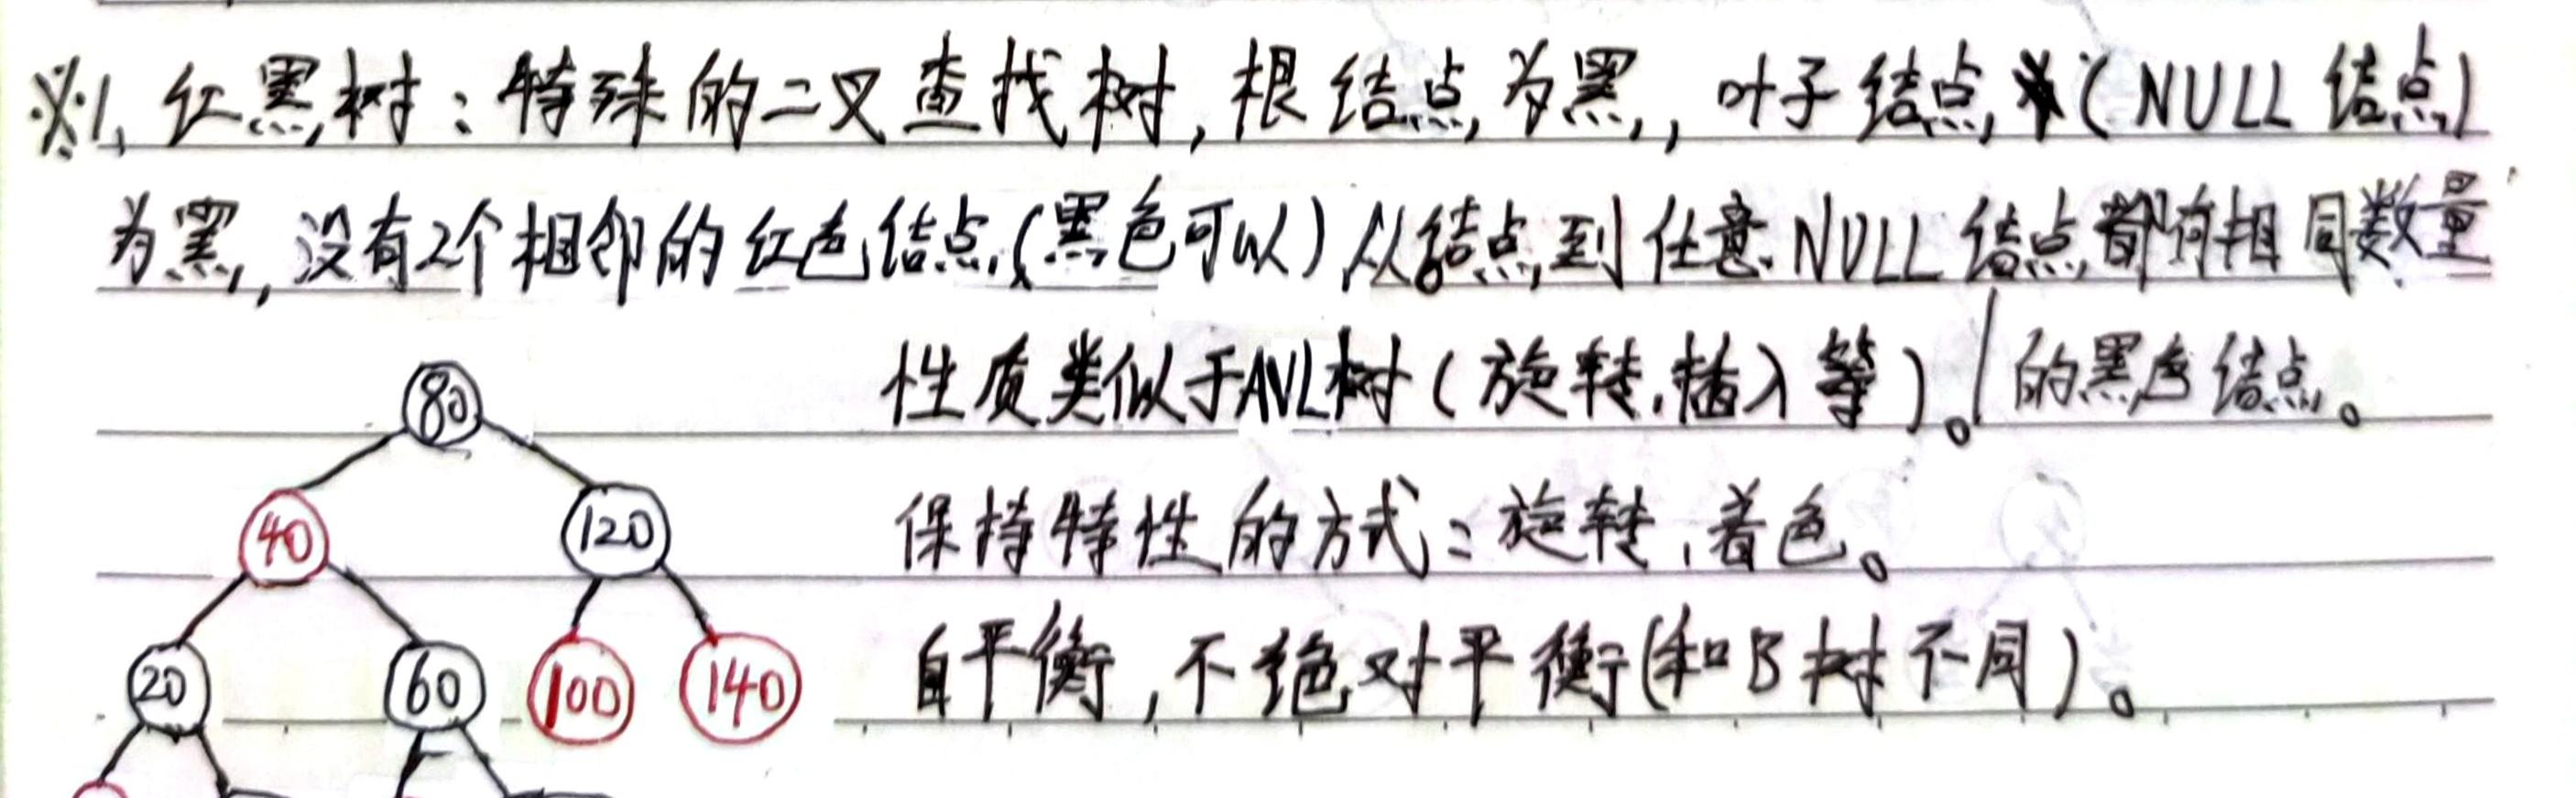 ※1、红黑树：特殊的二叉查找树，根结点为黑，叶子结点（NULL结点）
为黑，没有2个相邻的红色结点（黑色可以）从结点到任意NULL结点都有相同数量
的黑色结点。
性质类似于AVL树（旋转，插入等）。
保持特性的方式：旋转，着色。
自平衡，不绝对平衡（和B树不同）。
80
40 120
20 60 100 140